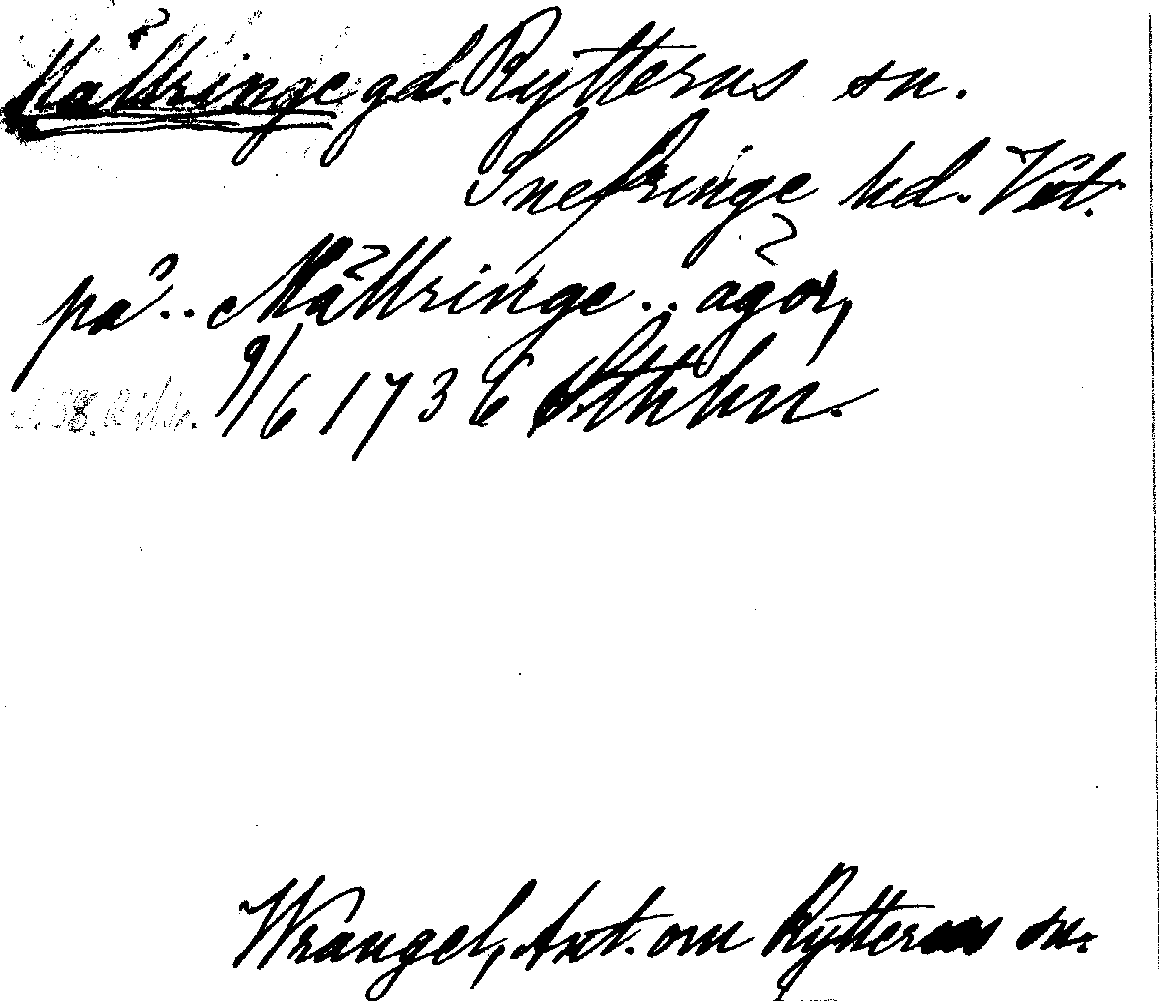 Mållringe gd. Rytterns sn.
Snefringe hd. Vstl.
på .. Mållringe .. ägor,
9/6 1736 Sthlm.
Wrangel, Ant. om Rytterns sn.